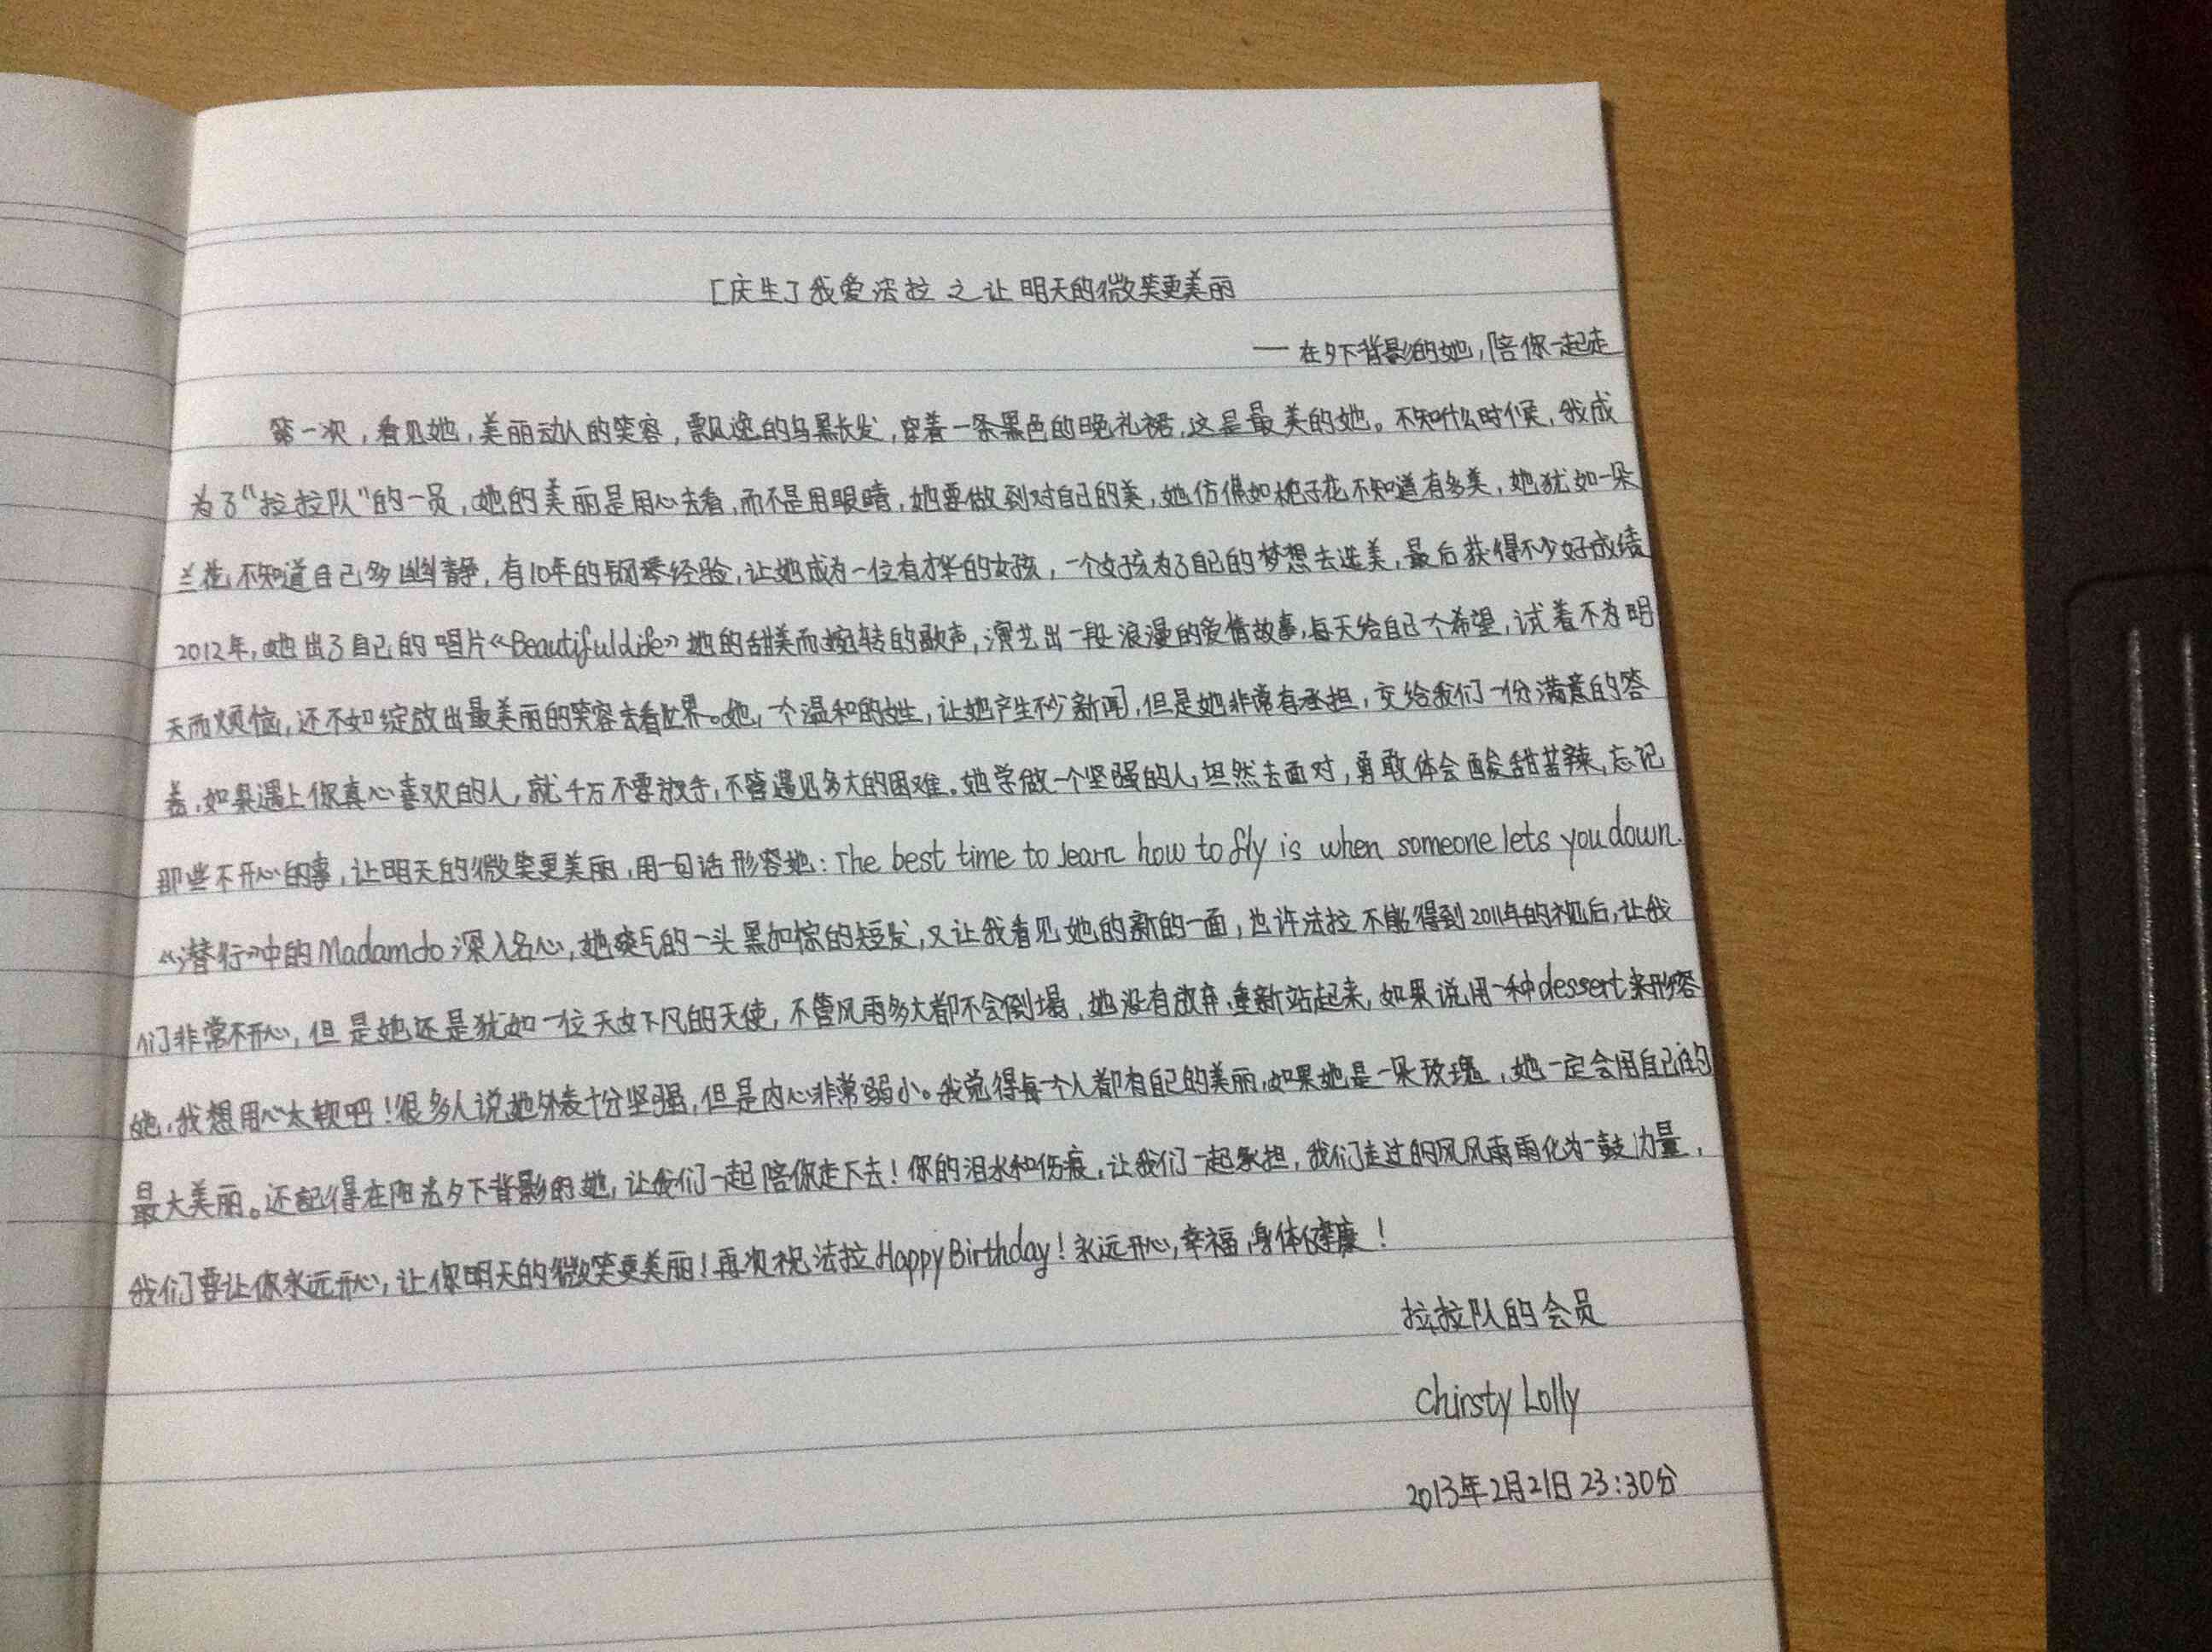 [庆生]我爱法拉 之 让明天的微笑更美丽
—— 在夕下背影的她,陪你一起走
第一次,看见她,美丽动人的笑容,飘逸的乌黑长发,穿着一条黑色的晚礼裙,这是最美的她。不知什么时候,我成
为了“拉拉队”的一员,她的美丽是用心去看,而不是用眼睛,她要做到对自己的美,她仿佛如栀子花不知道有多美,她犹如一朵
兰花不知道自己多幽静,有10年的钢琴经验,让她成为一位有才华的女孩,一个女孩为了自己的梦想去选美,最后获得不少好成绩
2012年,她出了自己的唱片《Beautiful Life》她的甜美而婉转的歌声,演艺出一段浪漫的爱情故事,每天给自己个希望,试着不为明
天而烦恼,还不如绽放出最美丽的笑容去看世界。她,一个温和的女生,让她产生不少新闻,但是她非常有承担,交给我们一份满意的答
卷,如果遇上你真心喜欢的人,就千万不要放手,不管遇见多大的困难。她学做一个坚强的人,坦然去面对,勇敢体会酸甜苦辣,忘记
那些不开心的事,让明天的微笑更美丽,用一句话形容她:The best time to learn how to fly is when someone lets you down.
《潜行》中的Madam do深入名心,她爽气的一头黑如棕的短发,又让我看见她的新的一面,也许法拉不能得到2011年的视后,让我
们非常不开心,但是她还是犹如一位天女下凡的天使,不管风雨多大都不会倒塌,她没有放弃,重新站起来,如果说用一种dessert来形容
她,我想用心太软吧!很多人说她外表十分坚强,但是内心非常弱小。我觉得每一个人都有自己的美丽,如果她是一朵玫瑰,她一定会用自己的
最大美丽。还記得在阳光夕下背影的她,让我们一起陪你走下去!你的泪水和伤痕,让我们一起承担,我们走过的风风雨雨化为一鼓力量,
我们要让你永远开心,让你明天的微笑更美丽!再次祝法拉Happy Birthday!永远开心,幸福,身体健康!
拉拉队的会员
Chirsty Lolly
2013年2月21日 23:30分